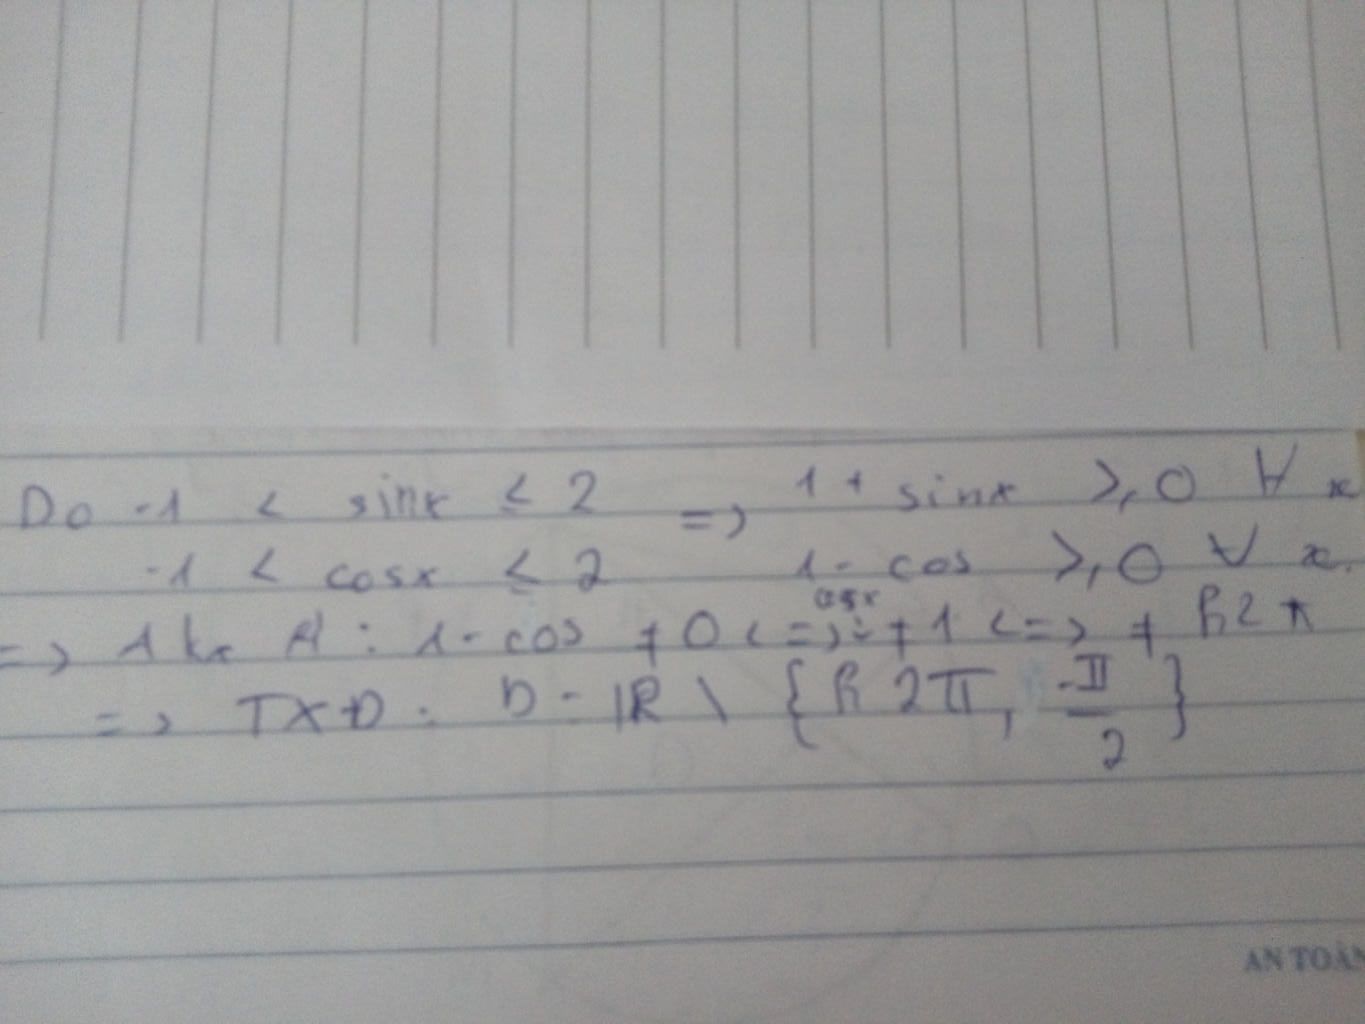 Do -1 < sinx ≤ 2 => 1 + sinx ≥ 0 ∀ x
-1 < cosx ≤ 2 1 - cos ≥ 0 ∀ x.
=> 1 kx Đ : 1 - cos ≠ 0 <=> cosx ≠ 1 <=> ≠ k2π
=> TXĐ : D = |R \ { k2π, -π/2 }
AN TOÀN